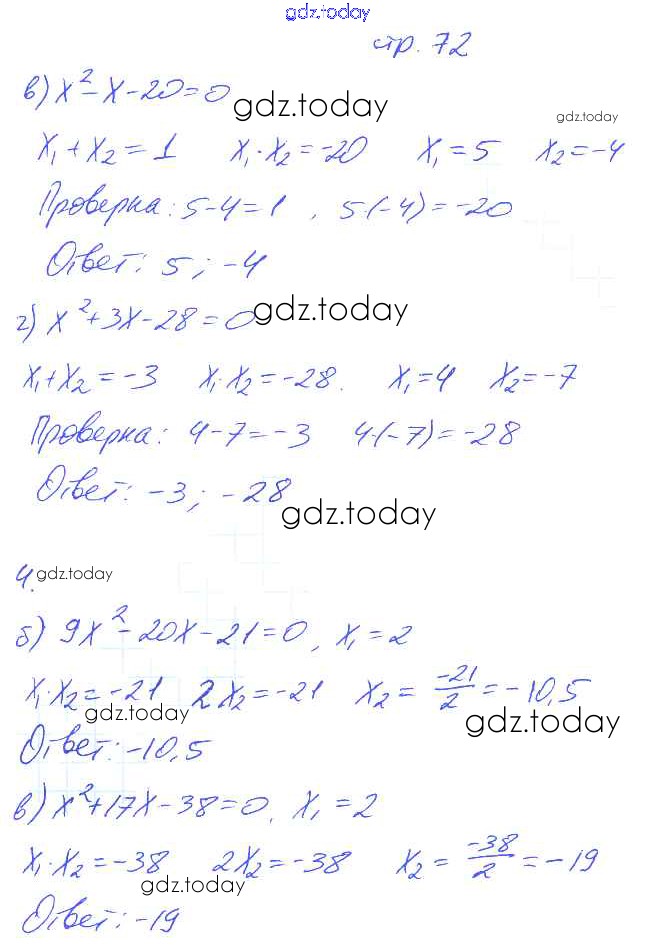 gdz.today
стр. 72
в) x² - x - 20 = 0 gdz.today
gdz.today
x₁ + x₂ = 1 x₁ · x₂ = -20 x₁ = 5 x₂ = -4
Проверка: 5 - 4 = 1 , 5·(-4) = -20
Ответ: 5 ; -4
г) x² + 3x - 28 = 0 gdz.today
x₁ + x₂ = -3 x₁ · x₂ = -28. x₁ = 4 x₂ = -7
Проверка: 4 - 7 = -3 4·(-7) = -28
Ответ: -3 ; -28
gdz.today
4. gdz.today
б) 9x² - 20x - 21 = 0 , x₁ = 2
x₁ · x₂ = -21 2x₂ = -21 x₂ = -21/2 = -10,5
gdz.today gdz.today
Ответ: -10,5
в) x² + 17x - 38 = 0, x₁ = 2
x₁ · x₂ = -38 2x₂ = -38 x₂ = -38/2 = -19
gdz.today
Ответ: -19